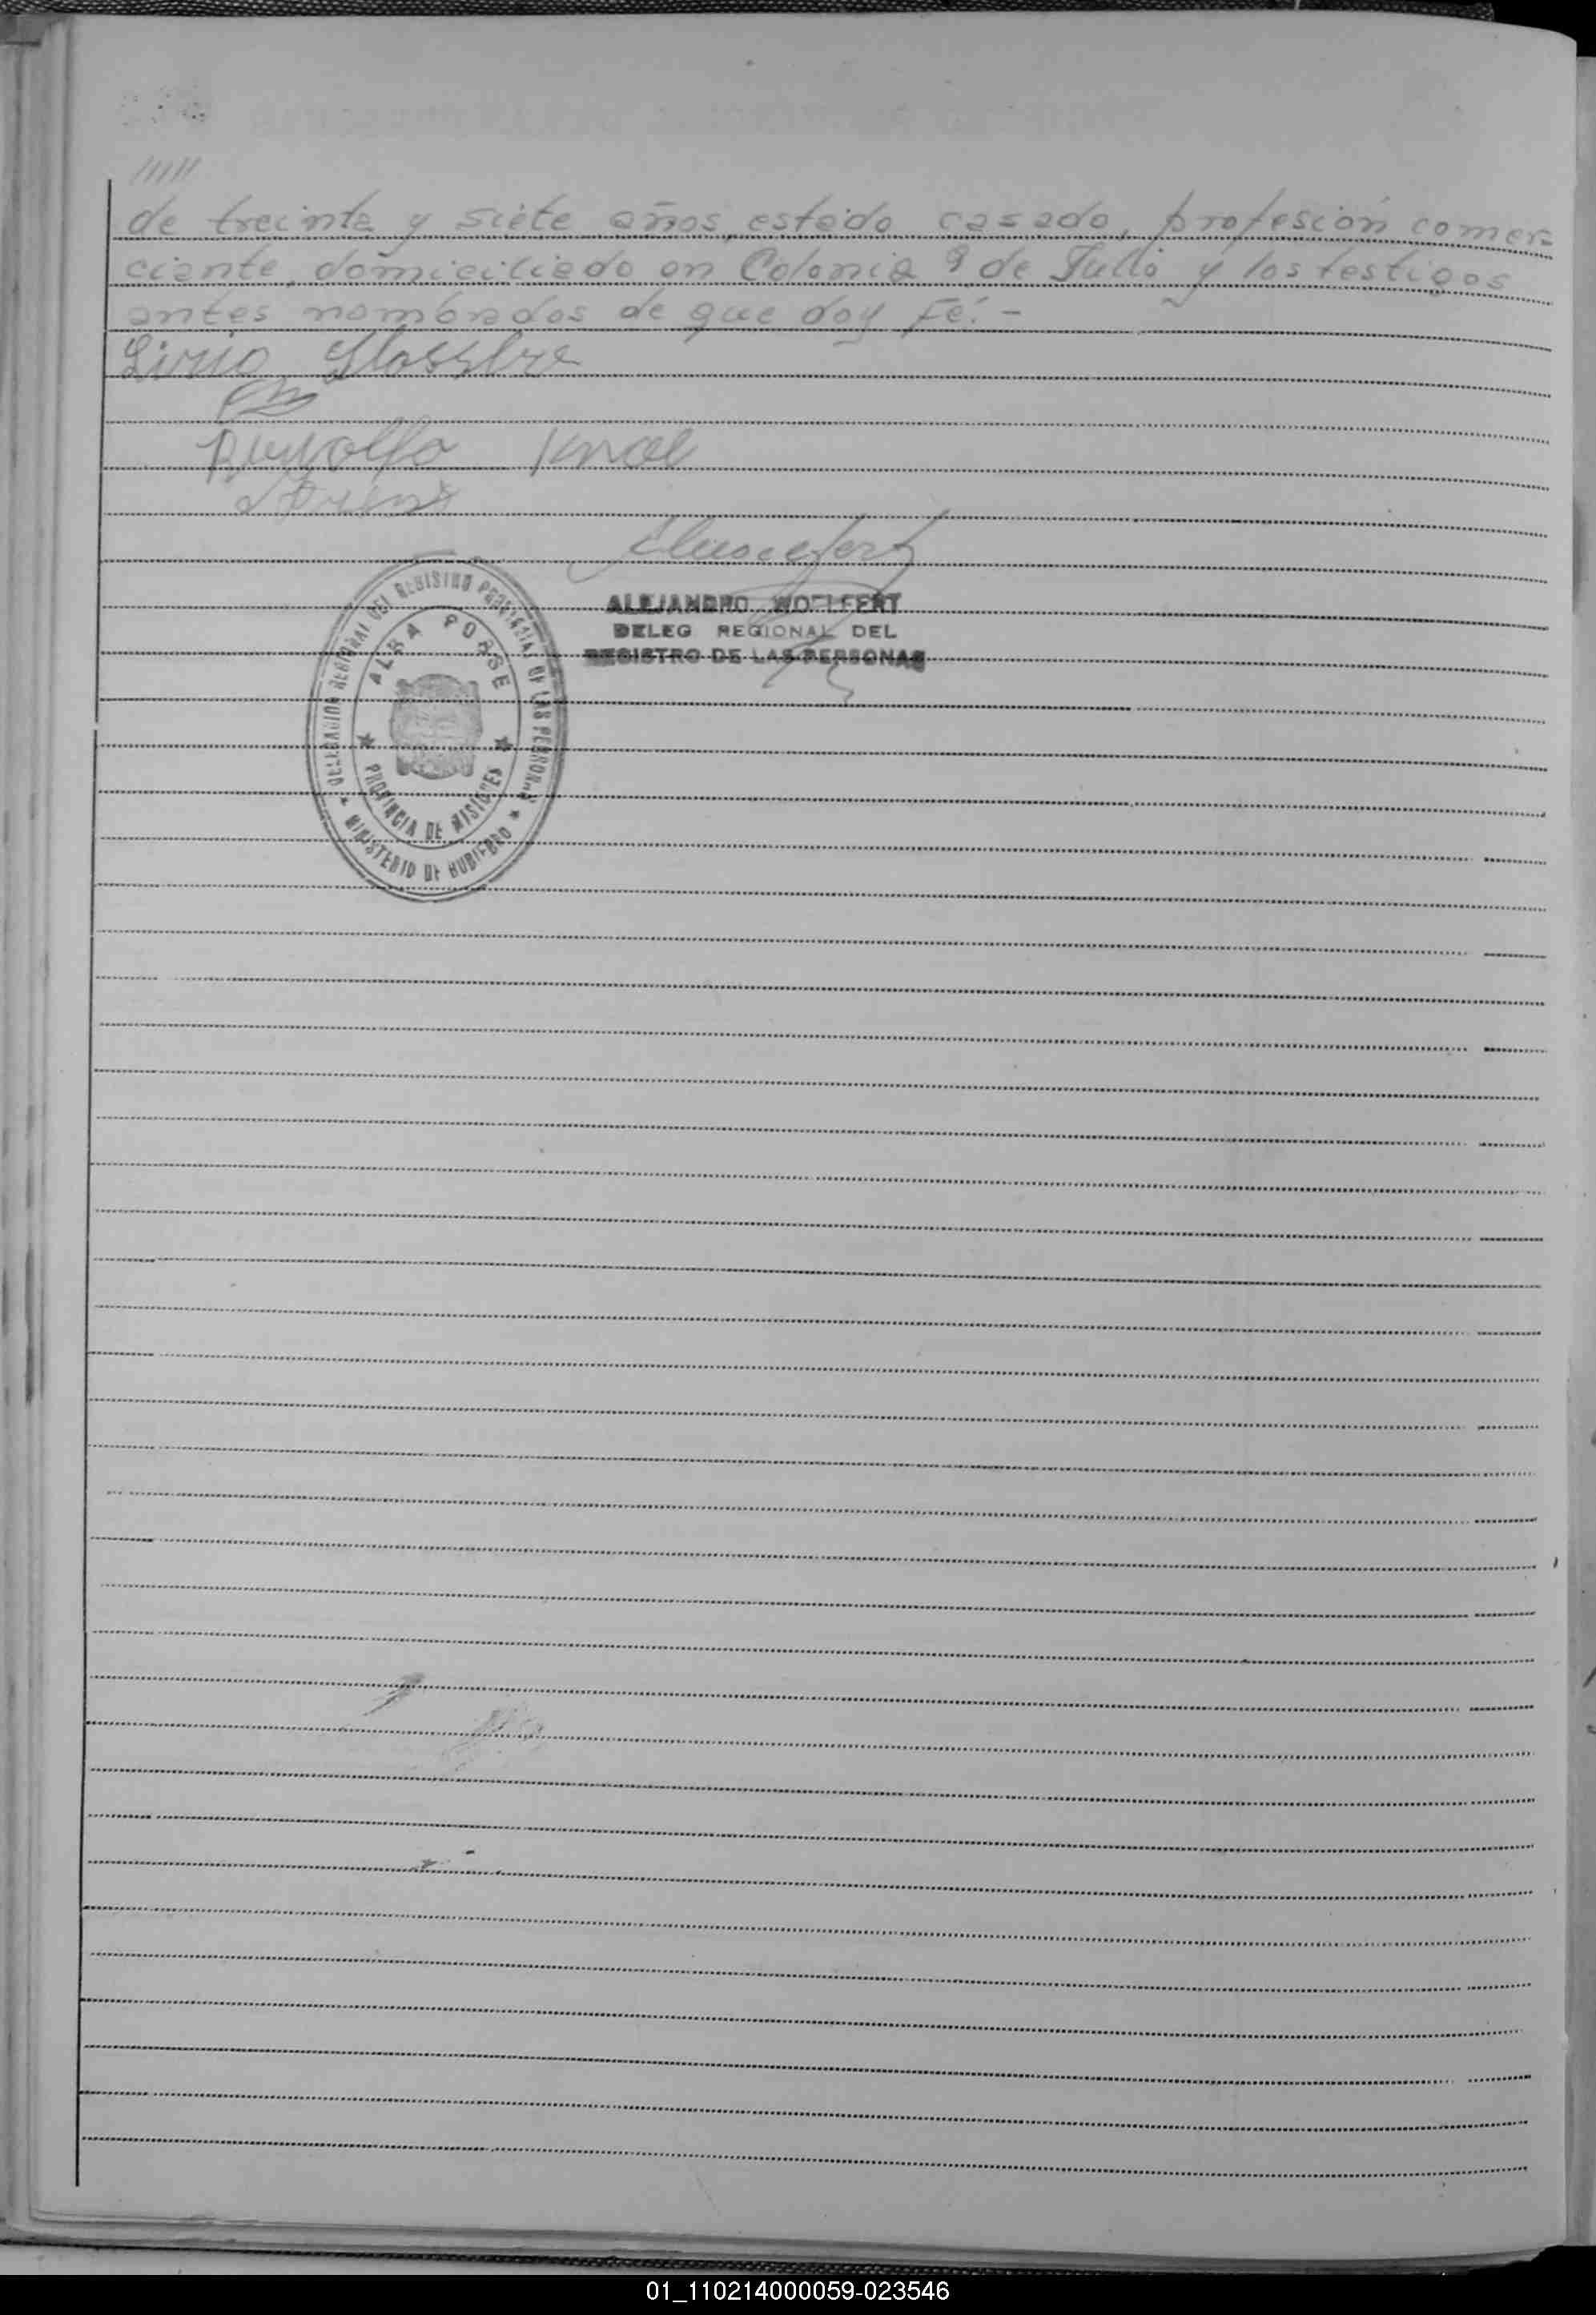 /////
de treinta y siete años, estado casado, profesión comer-
ciante, domiciliado en Colonia 9 de Julio y los testigos
antes nombrados de que doy Fé. -
Lirio
Rudolfo Knol
ALEJANDRO WOELFERT
DELEG REGIONAL DEL
REGISTRO DE LAS PERSONAS
DELEGACION REGIONAL DEL REGISTRO PROVINCIAL DE LAS PERSONAS
ALBA POSSE
PROVINCIA DE MISIONES
MINISTERIO DE GOBIERNO
01_110214000059-023546